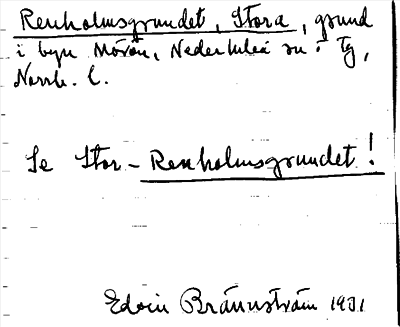 Renholmsgrundet, Stora, grund
i byn Mörön, Nederluleå sn i Tg,
Norrb. l.
Se Stor-Renholmsgrundet!
Edvin Brännström 1931